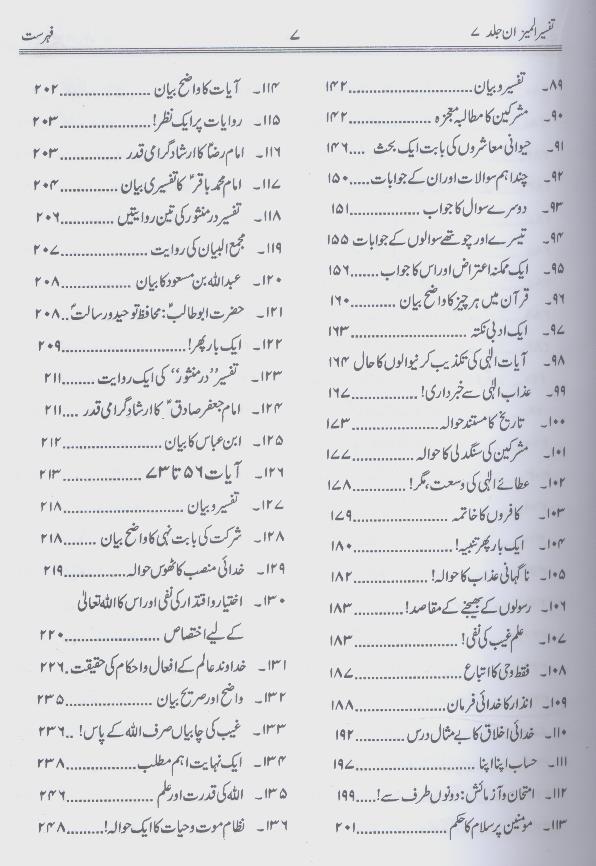 تفسیر المیزان جلد ۷ ۷ فہرست
۸۹۔ تفسیر و بیان ............................ ۱۴۲
۹۰۔ مشرکین کا مطالبہ معجزہ ............... ۱۴۲
۹۱۔ حیوانی معاشروں کی بابت ایک بحث .... ۱۴۶
۹۲۔ چند اہم سوالات اور ان کے جوابات ..... ۱۵۰
۹۳۔ دوسرے سوال کا جواب .................. ۱۵۱
۹۴۔ تیسرے اور چوتھے سوالوں کے جوابات ۱۵۵
۹۵۔ ایک ممکنہ اعتراض اور اس کا جواب ....... ۱۵۶
۹۶۔ قرآن میں ہر چیز کا واضح بیان ........... ۱۶۰
۹۷۔ ایک ادبی نکتہ ............................ ۱۶۳
۹۸۔ آیات الٰہی کی تکذیب کرنیوالوں کا حال ۱۶۴
۹۹۔ عذاب الٰہی سے خبرداری! ................ ۱۶۷
۱۰۰۔ تاریخ کا مستند حوالہ ..................... ۱۷۳
۱۰۱۔ مشرکین کی سنگدلی کا حوالہ .............. ۱۷۷
۱۰۲۔ عطائے الٰہی کی وسعت، مگر! ............ ۱۷۸
۱۰۳۔ کافروں کا خاتمہ ........................ ۱۷۹
۱۰۴۔ ایک بار پھر تنبیہ! ....................... ۱۸۰
۱۰۵۔ ناگہانی عذاب کا حوالہ! ................. ۱۸۲
۱۰۶۔ رسولوں کے بھیجنے کے مقاصد! .......... ۱۸۳
۱۰۷۔ علم غیب کی نفی! ........................ ۱۸۳
۱۰۸۔ فقط وحی کا اتباع ........................ ۱۸۷
۱۰۹۔ انذار کا خدائی فرمان ................... ۱۸۸
۱۱۰۔ خدائی اخلاق کا بے مثال درس ........... ۱۹۲
۱۱۱۔ حساب اپنا اپنا .......................... ۱۹۷
۱۱۲۔ امتحان و آزمائش: دونوں طرف سے! .... ۱۹۹
۱۱۳۔ مومنین پر سلام کا حکم .................. ۲۰۱
۱۱۴۔ آیات کا واضح بیان ..................... ۲۰۲
۱۱۵۔ روایات پر ایک نظر! ..................... ۲۰۳
۱۱۶۔ امام رضاؑ کا ارشاد گرامی قدر ............ ۲۰۳
۱۱۷۔ امام محمد باقرؑ کا تفسیری بیان ............ ۲۰۴
۱۱۸۔ تفسیر در منثور کی تین روایتیں ........... ۲۰۶
۱۱۹۔ مجمع البیان کی روایت .................... ۲۰۷
۱۲۰۔ عبداللہ بن مسعود کا بیان ................. ۲۰۸
۱۲۱۔ حضرت ابوطالبؑ: محافظ توحید و رسالتؐ .. ۲۰۸
۱۲۲۔ ایک بار پھر! ............................ ۲۰۹
۱۲۳۔ تفسیر ''در منثور'' کی ایک روایت ........ ۲۱۱
۱۲۴۔ امام جعفر صادقؑ کا ارشاد گرامی قدر .... ۲۱۱
۱۲۵۔ ابن عباس کا بیان ....................... ۲۱۲
۱۲۶۔ آیات ۵۶ تا ۷۳ ....................... ۲۱۳
۱۲۷۔ تفسیر و بیان ........................... ۲۱۸
۱۲۸۔ شرکت کی بابت نہی کا واضح بیان ........ ۲۱۸
۱۲۹۔ خدائی منصب کا ٹھوس حوالہ ............. ۲۱۹
۱۳۰۔ اختیار و اقتدار کی نفی اور اس کا اللہ تعالیٰ
کے لیے اختصاص ........................ ۲۲۰
۱۳۱۔ خداوند عالم کے افعال و احکام کی حقیقت . ۲۲۶
۱۳۲۔ واضح اور صریح بیان .................... ۲۳۵
۱۳۳۔ غیب کی چابیاں صرف اللہ کے پاس! .. ۲۳۶
۱۳۴۔ ایک نہایت اہم مطلب .................. ۲۳۸
۱۳۵۔ اللہ کی قدرت اور علم .................... ۲۴۶
۱۳۶۔ نظام موت و حیات کا ایک حوالہ! ........ ۲۴۸